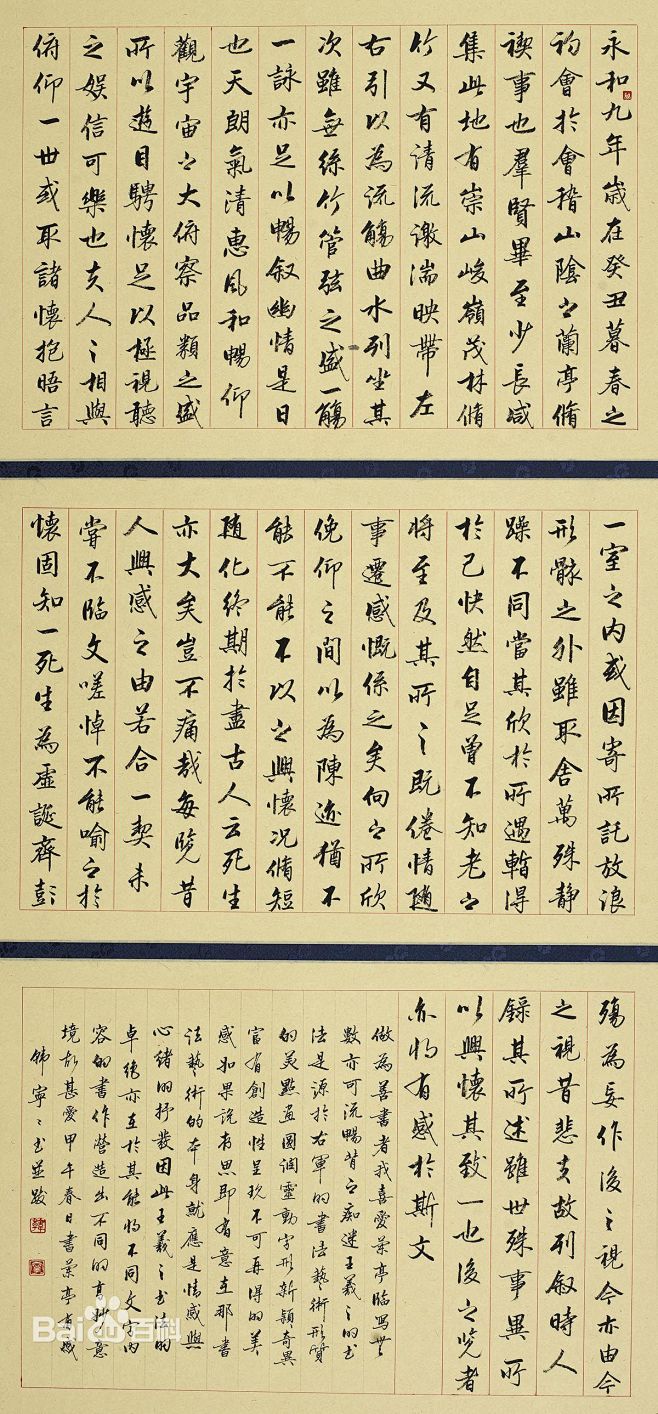 永和九年歲在癸丑暮春之
初會於會稽山陰之蘭亭脩
禊事也羣賢畢至少長咸
集此地有崇山峻嶺茂林脩
竹又有清流激湍映帶左
右引以為流觴曲水列坐其
次雖無絲竹管弦之盛一觴
一詠亦足以暢敘幽情是日
也天朗氣清惠風和暢仰
觀宇宙之大俯察品類之盛
所以遊目騁懷足以極視聽
之娛信可樂也夫人之相與
俯仰一世或取諸懷抱晤言
一室之内或因寄所託放浪
形骸之外雖取舍萬殊静
躁不同當其欣於所遇暫得
於己快然自足曾不知老之
將至及其所之既倦情隨
事遷感慨係之矣向之所欣
俛仰之間以為陳迹猶不
能不以之興懷况脩短
隨化終期於盡古人云死生
亦大矣豈不痛哉每覽昔
人興感之由若合一契未
嘗不臨文嗟悼不能喻之於
懷固知一死生為虛誕齊彭
殤為妄作後之視今亦由今
之視昔悲夫故列敘時人
錄其所述雖世殊事異所
以興懷其致一也後之覽者
亦將有感於斯文
做為善書者我喜愛蘭亭臨寫無
數亦可流暢背之痴迷王羲之的書
法是源於右軍的書法藝術形質
的美點畫圓潤靈動字形新穎奇異
富有創造性呈現不可再得的美
感如果說有思即有意在那書
法藝術的本身就應是情感與
心緒的抒發因此王羲之書法的
卓絕亦在於其能將不同文字内
容的書作營造出不同的美妙意
境故甚愛甲午春日書蘭亭有感
韩寧々書並跋
Bai百科